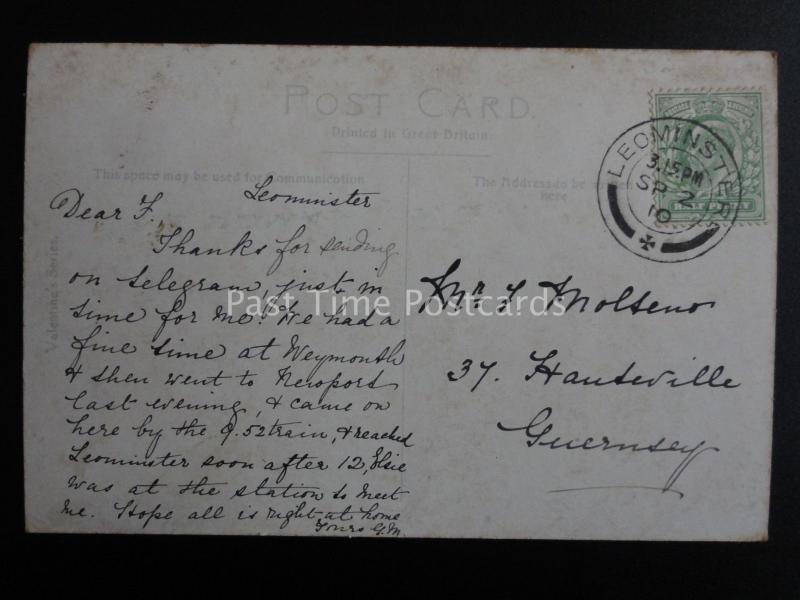 POST CARD.
Printed in Great Britain.
This space may be used for Communication
The Address to be
here
Valentine's Series.
LEOMINSTER
3.15 PM
SP 2
10
Leominster
Dear F.,
Thanks for sending
on telegram just in
time for me! We had a
fine time at Weymouth
& then went to Newport
last evening, & came on
here by the 9.52 train, & reached
Leominster soon after 12, Elsie
was at the station to meet
me. Hope all is right at home
Yours G.M.
Mr. F Molteno
37. Hauteville
Guernsey
Past Time Postcards